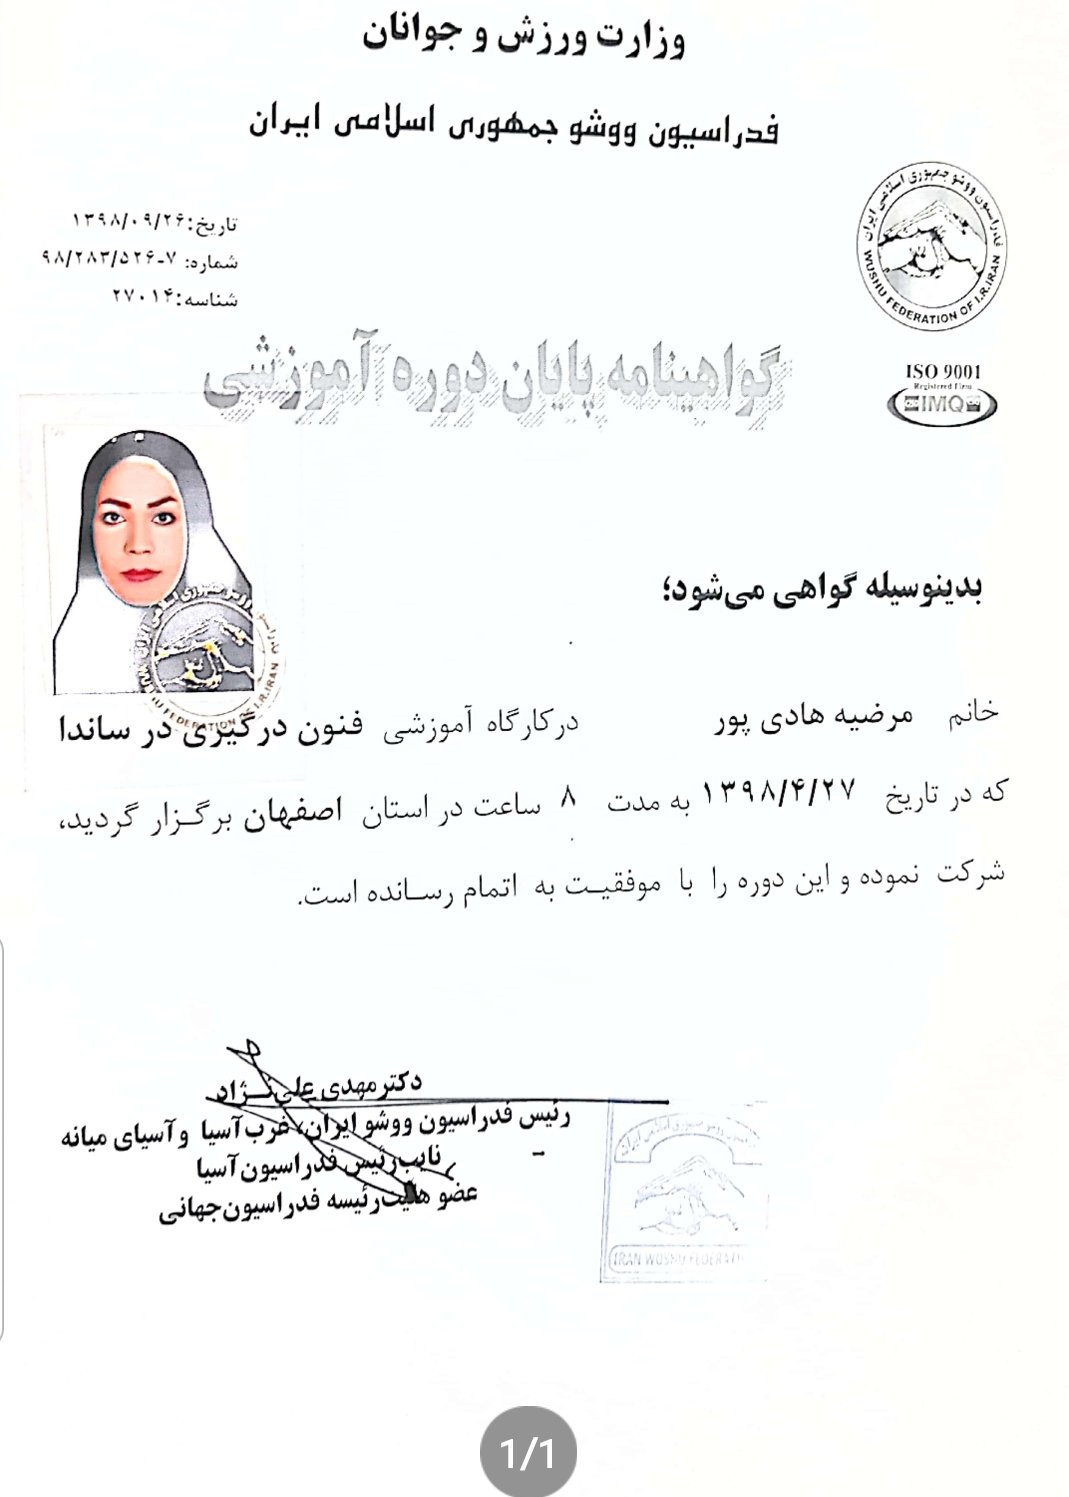 وزارت ورزش و جوانان
فدراسیون ووشو جمهوری اسلامی ایران
تاریخ: ۱۳۹۸/۰۹/۲۶
شماره: ۹۸/۲۸۳/۵۲۶-۷
شناسه: ۲۷۰۱۴
فدراسیون ووشو جمهوری اسلامی ایران
WUSHU FEDERATION OF I.R.IRAN
ISO 9001
Registered Firm
IMQ
گواهینامه پایان دوره آموزشی
WUSHU FEDERATION OF I.R.IRAN
بدینوسیله گواهی می‌شود؛
خانم مرضیه هادی پور درکارگاه آموزشی فنون درگیری در ساندا
که در تاریخ ۱۳۹۸/۴/۲۷ به مدت ۸ ساعت در استان اصفهان برگزار گردید،
شرکت نموده و این دوره را با موفقیت به اتمام رسانده است.
دکتر مهدی علی‌نژاد
رئیس فدراسیون ووشو ایران، غرب آسیا و آسیای میانه
نایب رئیس فدراسیون آسیا
عضو هیئت رئیسه فدراسیون جهانی
IRAN WUSHU FEDERATION
1/1